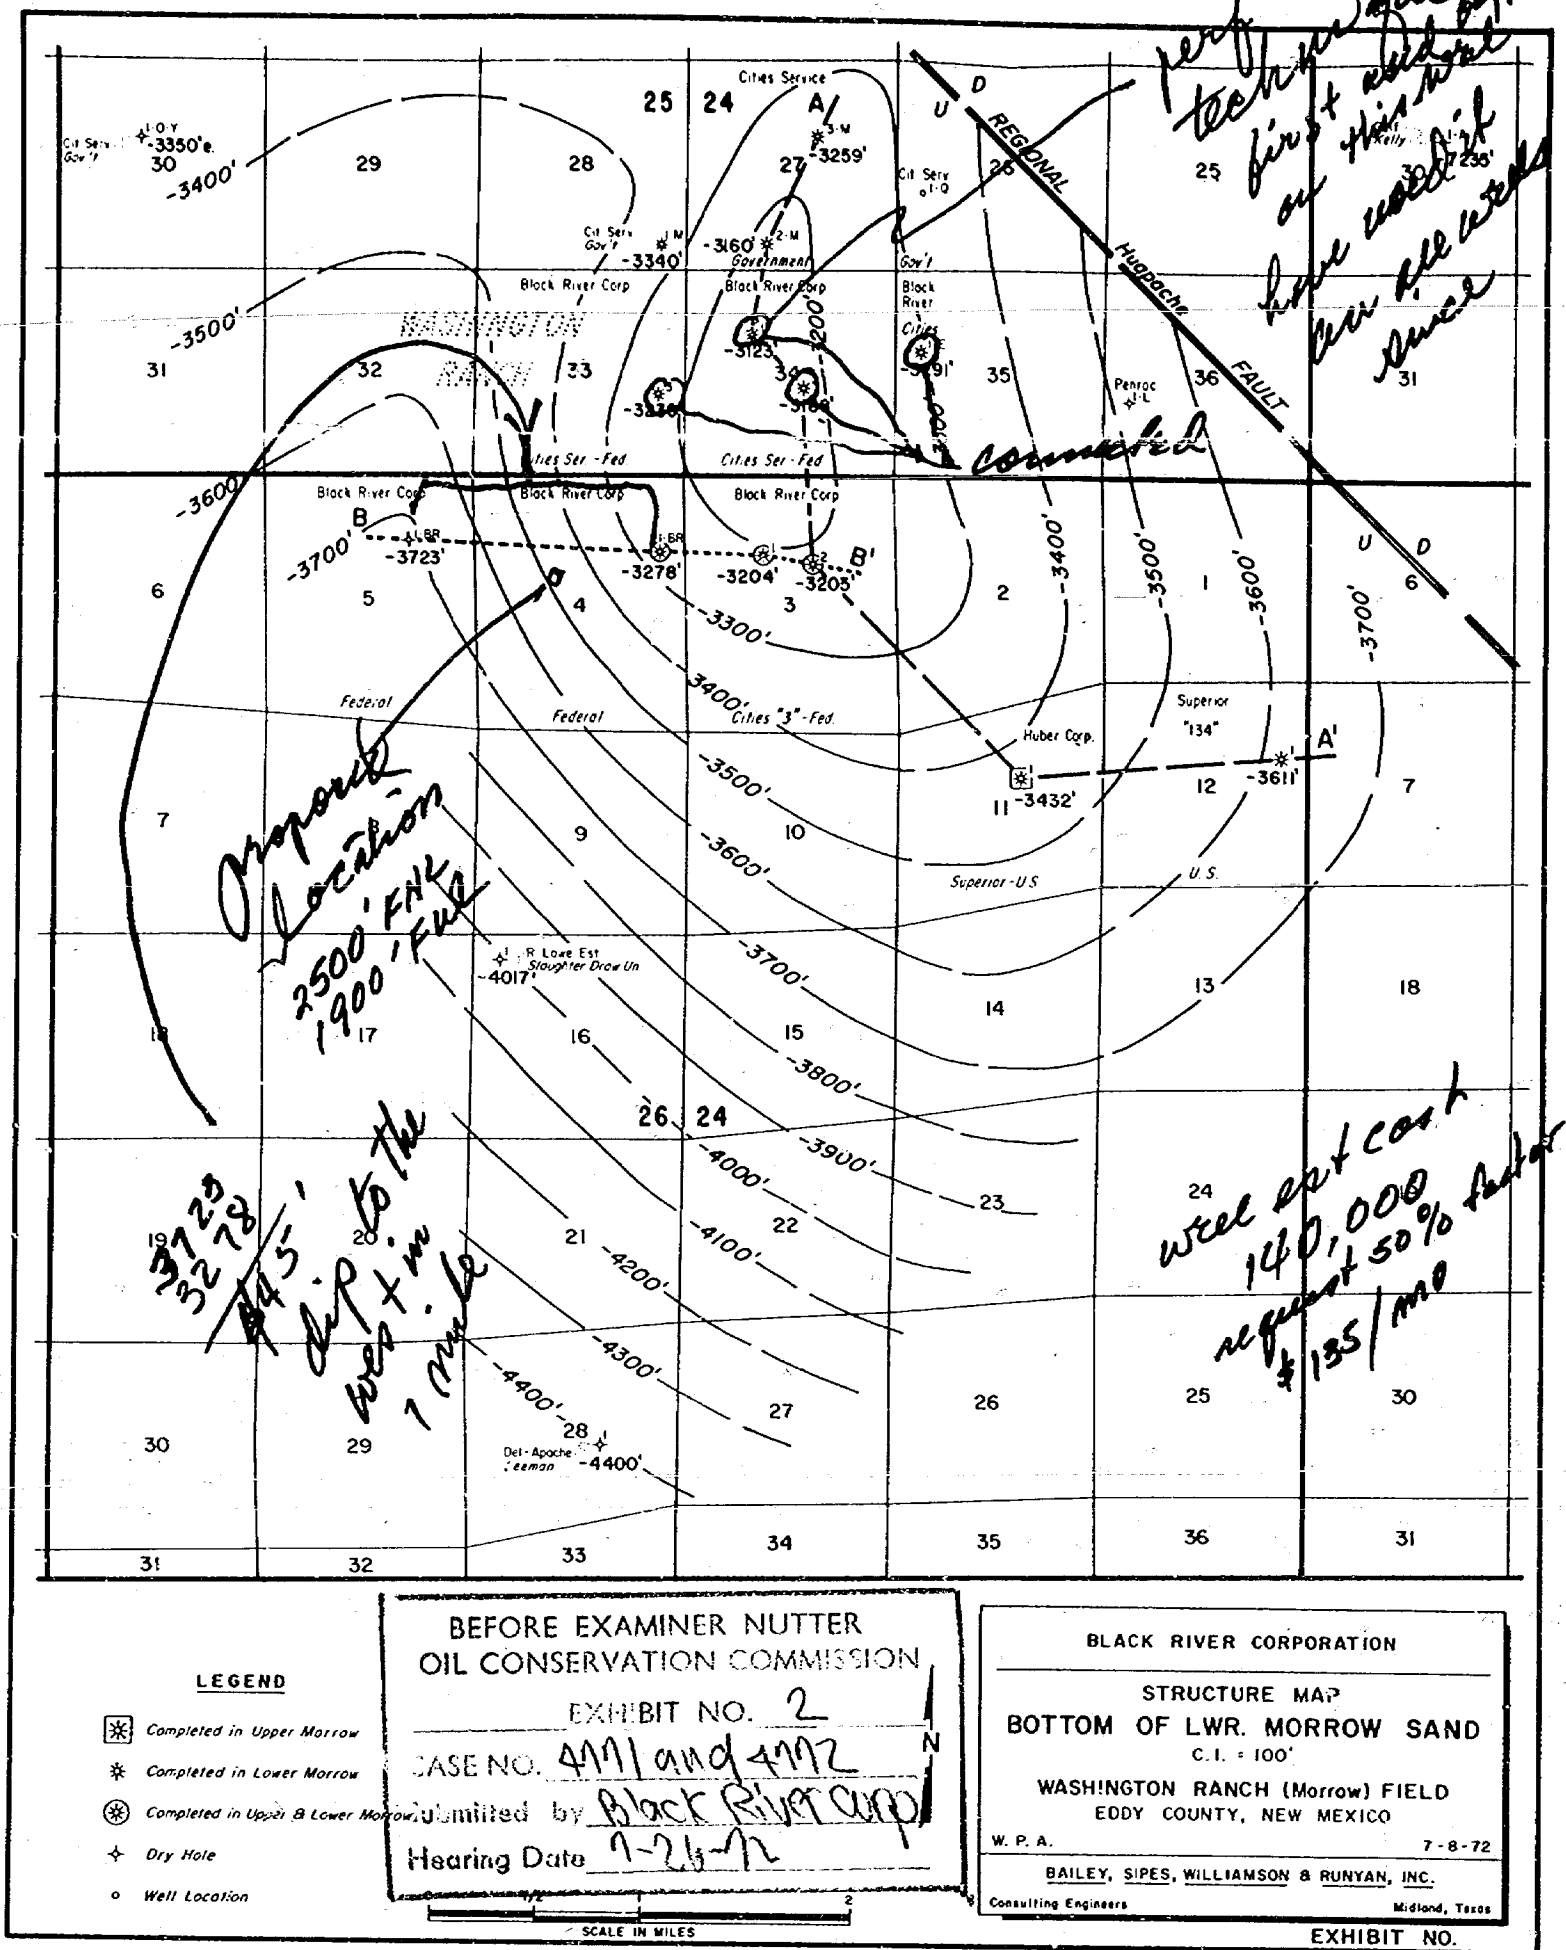 perf
techn
first
on this well
have used it
on all wells
since
Cities Service
25 24
A
3-M
-3259'
27
D
U
REGIONAL
Huapache
FAULT
26
25
Kelly
Cit Serv
Gov't
1-O-Y
-3350'e.
30
29
28
-3400'
Cit Serv
1-Q
Cit Serv
Gov't
1 M
-3340'
-3160'
2-M
Government
Gov't
Black River Corp
Black River Corp
Black
River
Cities
-3500'
WASHINGTON
RANCH
-3200'
-3123'
31
32
33
34
35
36
31
Penroc
1-L
connected
Cities Ser.-Fed
Cities Ser-Fed
-3600'
Black River Corp
Black River Corp
Black River Corp
B
1-BR
-3723'
1-BR
-3278'
1
-3204'
2
-3205'
B'
-3700'
6
5
4
3
2
1
6
U D
-3300'
-3400'
-3500'
-3600'
-3700'
-3400'
Federal
Federal
Cities "3"-Fed.
Huber Corp.
Superior
"134"
A'
-3611'
-3432'
-3500'
7
9
10
11
12
7
-3600'
Superior-U.S
U.S.
Proposed
Location
2500' FNL
1900' FWL
1
R Lowe Est
Slaughter Draw Un
-4017'
-3700'
18
17
16
15
14
13
18
-3800'
26 24
-3900'
-4000'
-4100'
-4200'
-4300'
-4400'
19
20
21
22
23
24
3723
3278
445'
dip to the
west in
1 mile
well est cost
140,000
request 50% factor
$135/mo
30
29
28
27
26
25
30
Del-Apache
-4400'
31
32
33
34
35
36
31
LEGEND
Completed in Upper Morrow
Completed in Lower Morrow
Completed in Upper & Lower Morrow
Dry Hole
Well Location
BEFORE EXAMINER NUTTER
OIL CONSERVATION COMMISSION
EXHIBIT NO. 2
CASE NO. 4771 and 4772
Submitted by Black River Corp
Hearing Date 7-26-72
N
1/2
2
SCALE IN MILES
BLACK RIVER CORPORATION
STRUCTURE MAP
BOTTOM OF LWR. MORROW SAND
C.I. = 100'
WASHINGTON RANCH (Morrow) FIELD
EDDY COUNTY, NEW MEXICO
W. P. A. 7-8-72
BAILEY, SIPES, WILLIAMSON & RUNYAN, INC.
Consulting Engineers Midland, Texas
EXHIBIT NO.